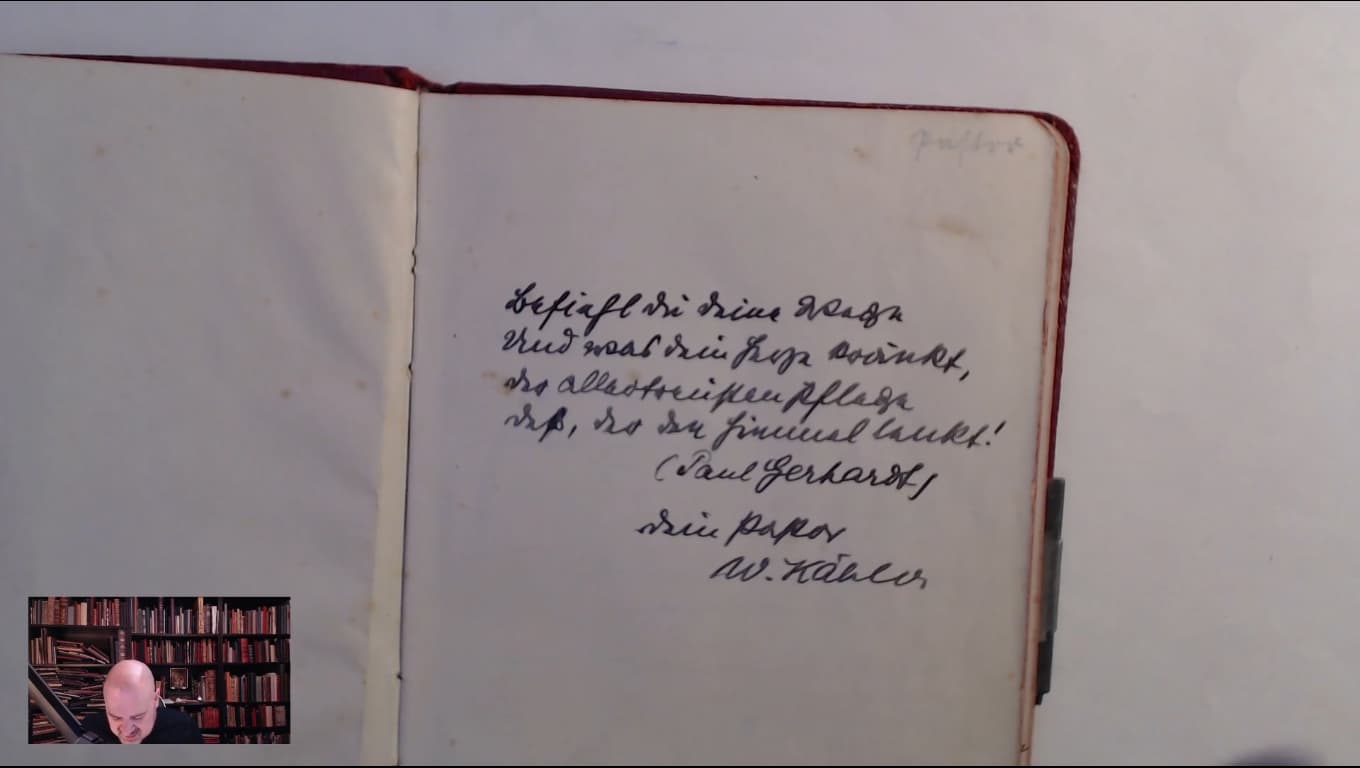 Pastor
Befiehl du deine Wege
Und was dein Herze kränkt,
der allertreusten Pflege
deß, der den Himmel lenkt!
(Paul Gerhardt)
dein Pastor
W. Kähler